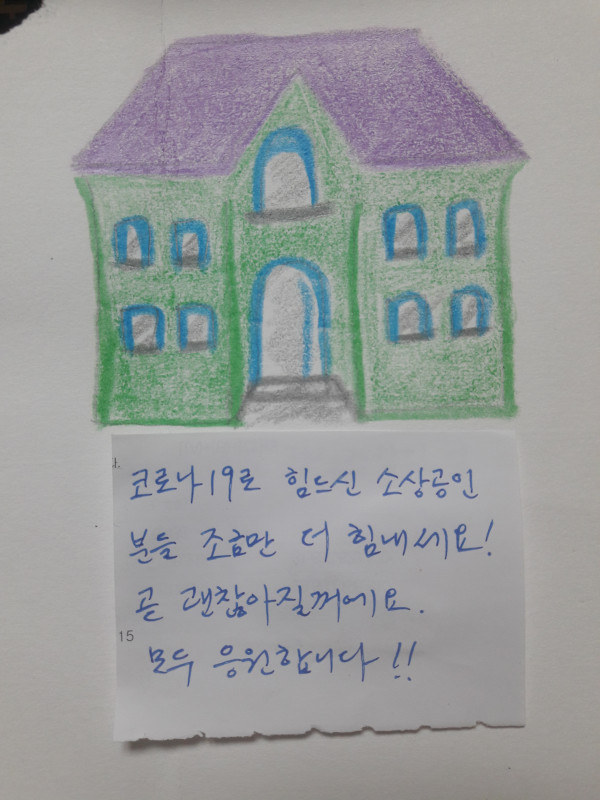 코로나19로 힘드신 소상공인
분들 조금만 더 힘내세요!
곧 괜찮아질꺼에요.
15
모두 응원합니다!!